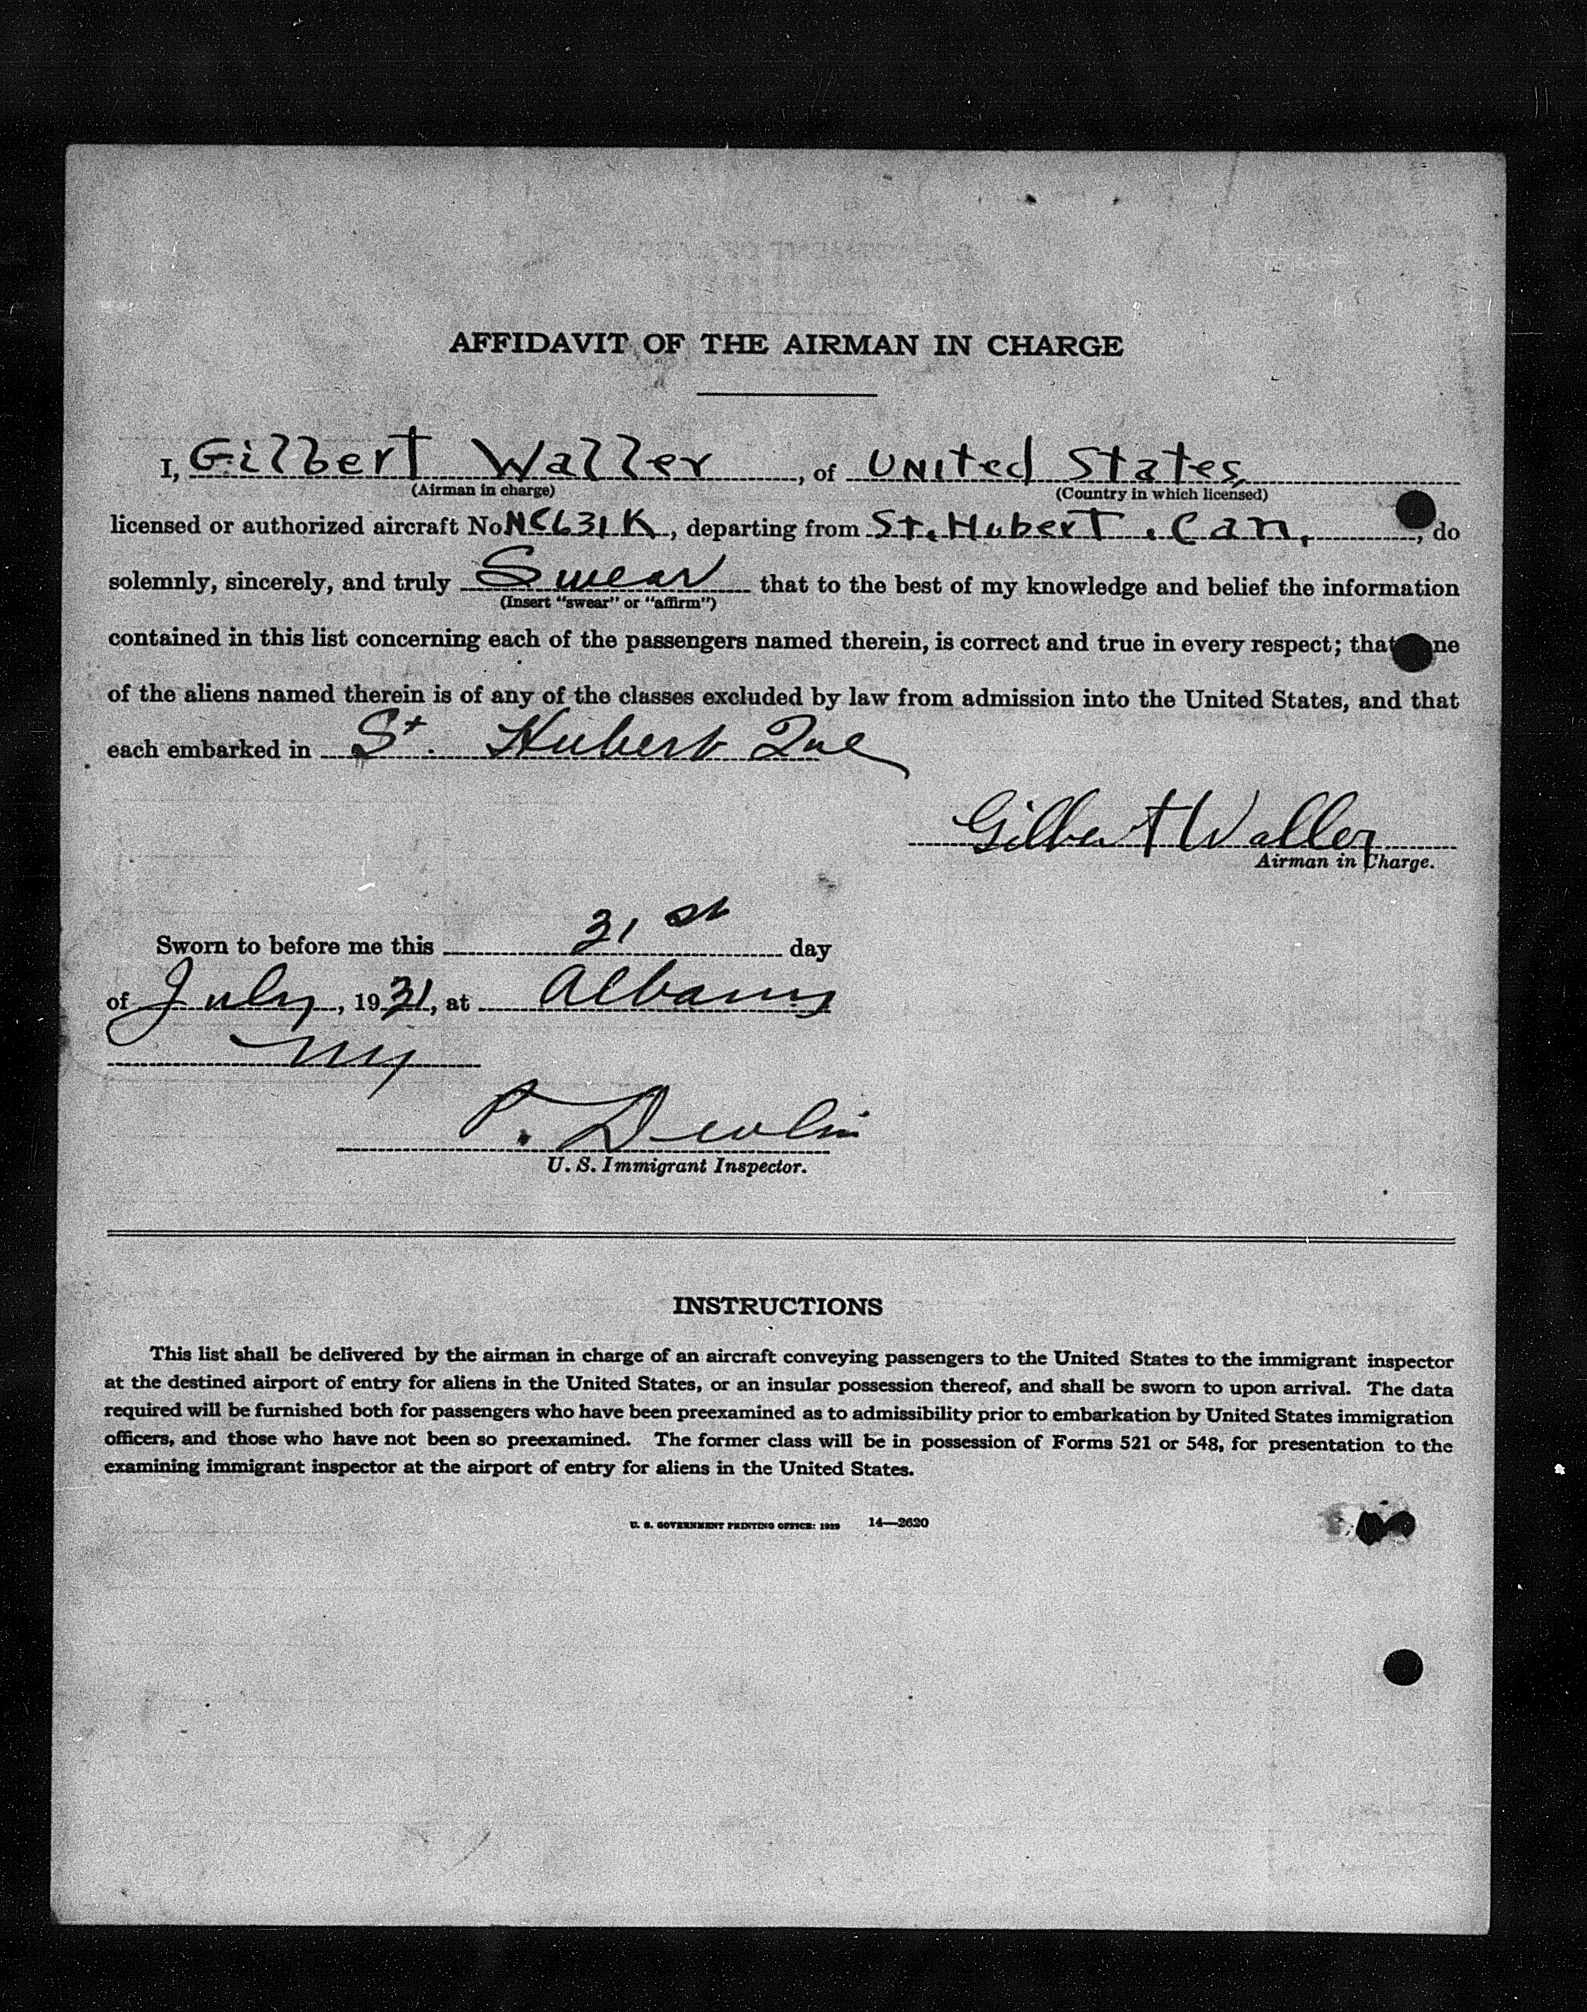 AFFIDAVIT OF THE AIRMAN IN CHARGE
I, Gilbert Waller, of United States
(Airman in charge) (Country in which licensed)
licensed or authorized aircraft No NC631K, departing from St. Hubert. Can., do
solemnly, sincerely, and truly Swear that to the best of my knowledge and belief the information
(Insert "swear" or "affirm")
contained in this list concerning each of the passengers named therein, is correct and true in every respect; that ne
of the aliens named therein is of any of the classes excluded by law from admission into the United States, and that
each embarked in St. Hubert Que
Gilbert Waller
Airman in Charge.
Sworn to before me this 31st day
of July, 1931, at Albany
NY
P. Devlin
U. S. Immigrant Inspector.
INSTRUCTIONS
This list shall be delivered by the airman in charge of an aircraft conveying passengers to the United States to the immigrant inspector
at the destined airport of entry for aliens in the United States, or an insular possession thereof, and shall be sworn to upon arrival. The data
required will be furnished both for passengers who have been preexamined as to admissibility prior to embarkation by United States immigration
officers, and those who have not been so preexamined. The former class will be in possession of Forms 521 or 548, for presentation to the
examining immigrant inspector at the airport of entry for aliens in the United States.
U. S. GOVERNMENT PRINTING OFFICE: 1929 14—2620